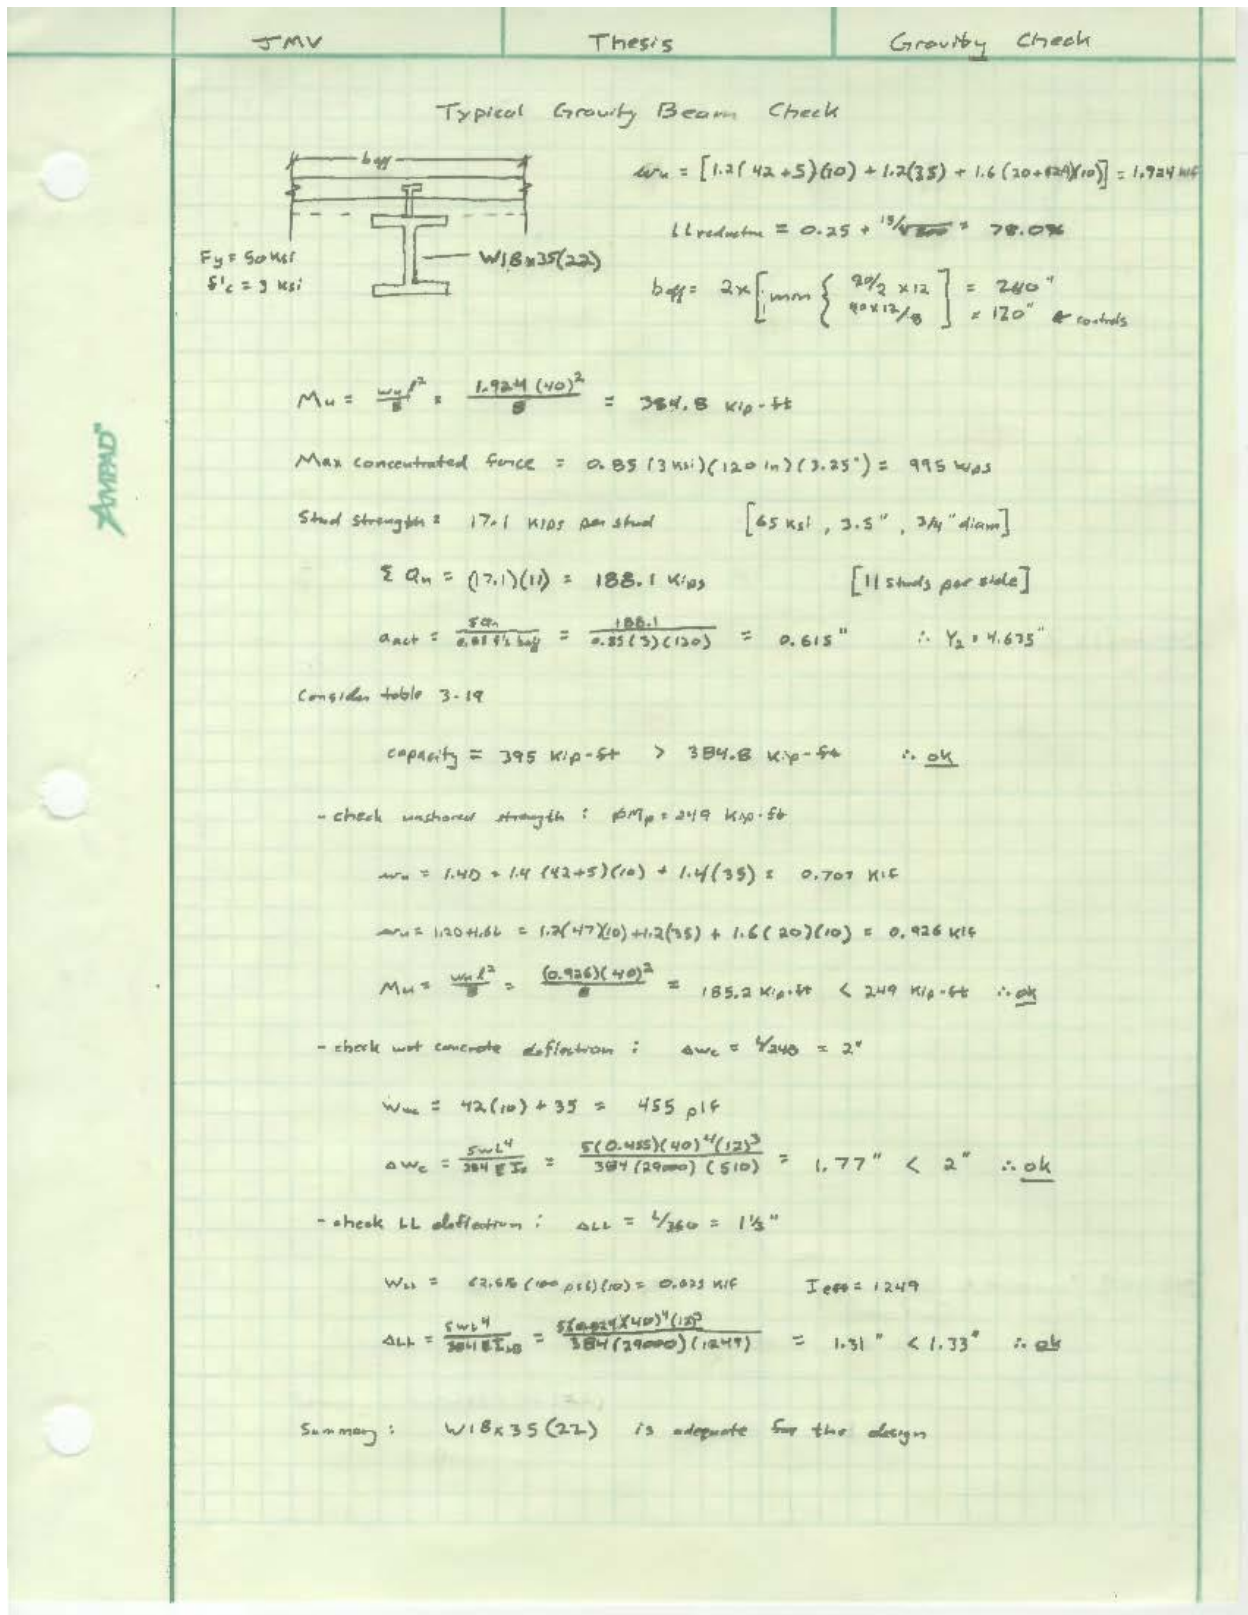 JMV Thesis Gravity Check
Typical Gravity Beam Check
beff
wu = [1.2(42+5)(10) + 1.2(35) + 1.6(20+ )(10)] = 1.924 klf
LL reduction = 0.25 + 15/√800 = 78.0%
W18x35(22)
Fy = 50 ksi
f'c = 3 ksi
beff = 2x [min { /2 x12 ] = 240"
40x12/8 = 120" ← controls
Mu = wul²/8 = 1.924(40)²/8 = 384.8 kip-ft
AMPAD
Max concentrated force = 0.85(3 ksi)(120 in)(3.25") = 995 kips
Stud strength = 17.1 kips per stud [65 ksi, 3.5", 3/4" diam]
ΣQn = (17.1)(11) = 188.1 kips [11 studs per side]
aact = ΣQn/0.85 f'c beff = 188.1/0.85(3)(120) = 0.615" ∴ Y2 = 4.675"
Consider table 3-19
capacity = 395 kip-ft > 384.8 kip-ft ∴ ok
- check unshored strength : ϕMp = 249 kip-ft
wu = 1.4D = 1.4(42+5)(10) + 1.4(35) = 0.707 klf
wu = 1.2D+1.6L = 1.2(47)(10)+1.2(35) + 1.6(20)(10) = 0.926 klf
Mu = wul²/8 = (0.926)(40)²/8 = 185.2 kip-ft < 249 kip-ft ∴ ok
- check wet concrete deflection : Δwc = L/240 = 2"
Wwc = 42(10) + 35 = 455 plf
Δwc = 5wL⁴/384EIx = 5(0.455)(40)⁴(12)³/384(29000)(510) = 1.77" < 2" ∴ ok
- check LL deflection : ΔLL = L/360 = 1⅓"
WLL = (100 psf)(10) = klf Ieff = 1249
ΔLL = 5wL⁴/384EILB = (40)⁴(12)³/384(29000)(1249) = 1.31" < 1.33" ∴ ok
Summary : W18x35(22) is adequate for the design